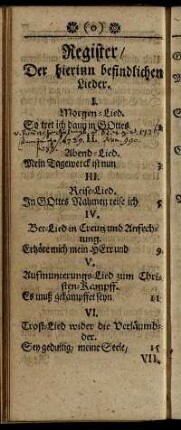 Register/
Der hierinn befindlichen
Lieder.
I.
Morgen-Lied.
So tret ich dann in GOttes
II.
Abend-Lied.
Mein Tagewerck ist nun 3
III.
Reise-Lied.
In GOttes Nahmen reise ich 5
IV.
Bet-Lied in Creutz und Anfech-
tung.
Erhöre mich mein HErr und 9
V.
Aufmunterungs-Lied zum Chri-
sten-Kampff.
Es muß gekämpffet seyn 11
VI.
Trost-Lied wider die Verläumb-
der.
Sey gedultig, meine Seele, 15
VII.